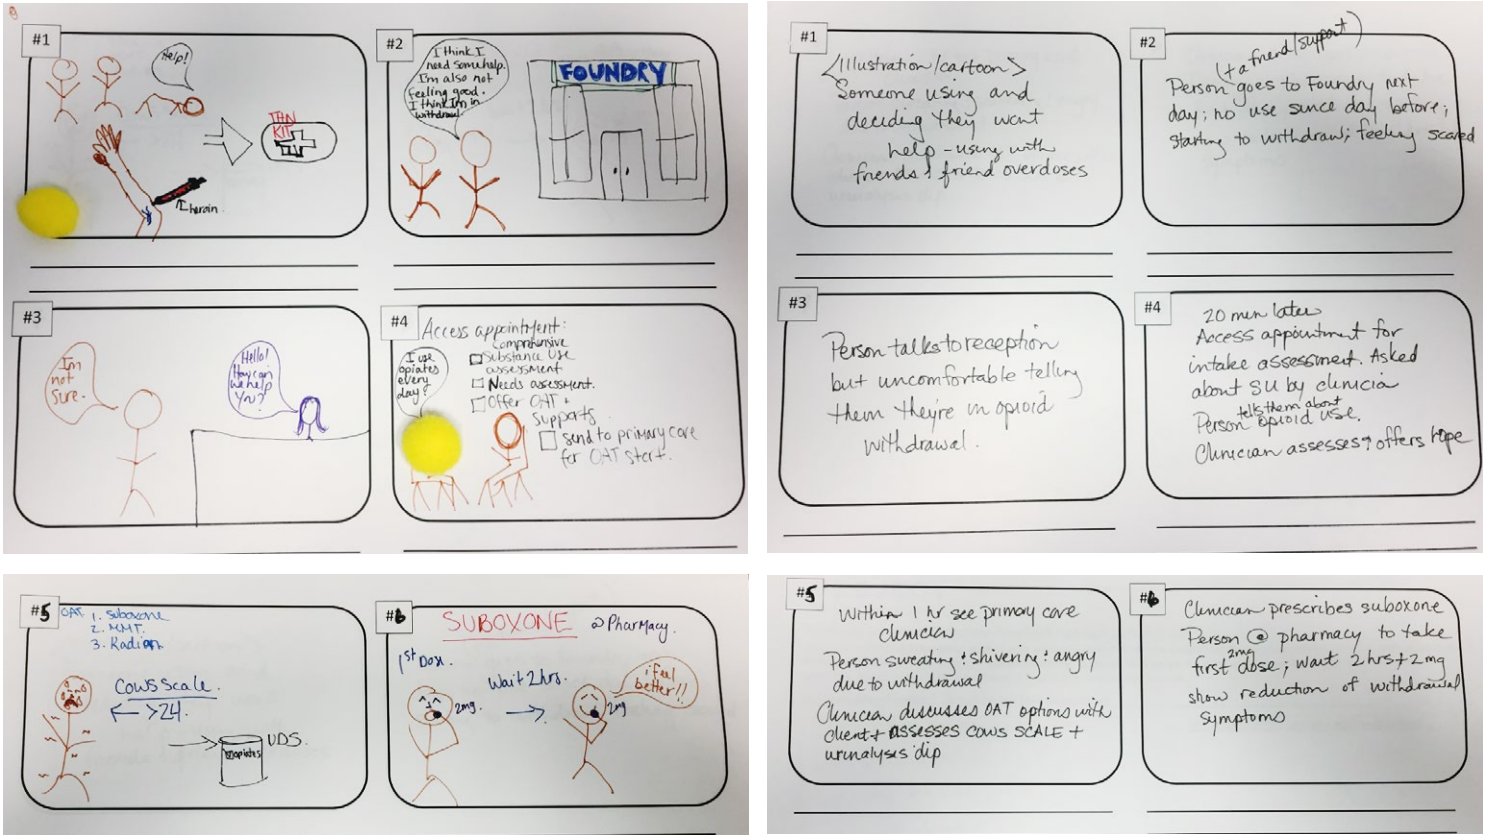 #1
Help!
THN
KIT
heroin
#2
I think I
need some help.
I'm also not
feeling good.
I think I'm in
withdrawal.
FOUNDRY
#3
I'm
not
sure.
Hello!
How can
we help
you?
#4
Access appointment:
Comprehensive
Substance Use
assessment
Needs assessment.
Offer OAT +
supports
Send to primary care
for OAT start.
I use
opiates
every
day?
#5
OAT
1. Suboxone
2. MMT.
3. Kadian
COWS Scale.
>24.
UDS.
opiates
#6
SUBOXONE
@ Pharmacy.
1st Dose.
Wait 2hrs.
2mg.
2mg
i feel
better!!
#1
<Illustration/cartoon>
Someone using and
deciding they want
help - using with
friends & friend overdoses
#2
(+ a friend/support)
Person goes to Foundry next
day; no use since day before;
starting to withdraw; feeling scared
#3
Person talks to reception
but uncomfortable telling
them they're in opioid
withdrawal.
#4
20 min later
Access appointment for
intake assessment. Asked
about SU by clinicia
tells them about
Person opioid use.
Clinician assesses & offers hope
#5
Within 1 hr see primary care
clinician
Person sweating + shivering + angry
due to withdrawal
Clinician discusses OAT options with
client + ASSESSES COWS SCALE +
urinalyses dip
#6
Clinician prescribes suboxone
Person @ pharmacy to take
2mg
first dose; wait 2hrs + 2mg
show reduction of withdrawal
symptoms